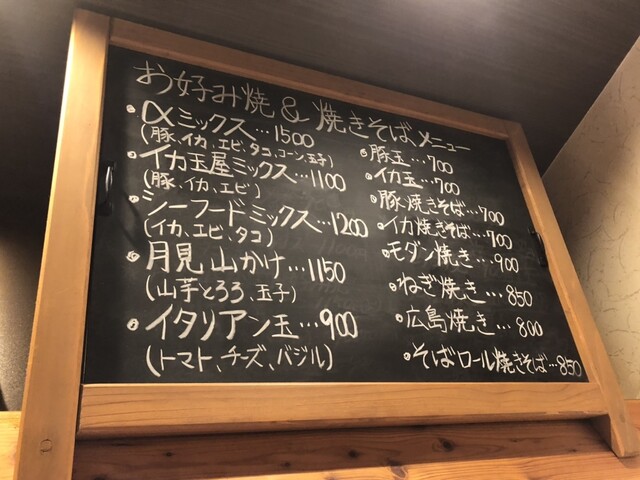 お好み焼 & 焼きそばメニュー
αミックス…1500
(豚、イカ、エビ、タコ、コーン、玉子)
イカ玉屋ミックス…1100
(豚、イカ、エビ)
シーフードミックス…1200
(イカ、エビ、タコ)
月見山かけ…1150
(山芋とろろ、玉子)
イタリアン玉…900
(トマト、チーズ、バジル)
豚玉…700
イカ玉…700
豚焼きそば…700
イカ焼きそば…700
モダン焼き…900
ねぎ焼き…850
広島焼き…800
そばロール焼きそば…850